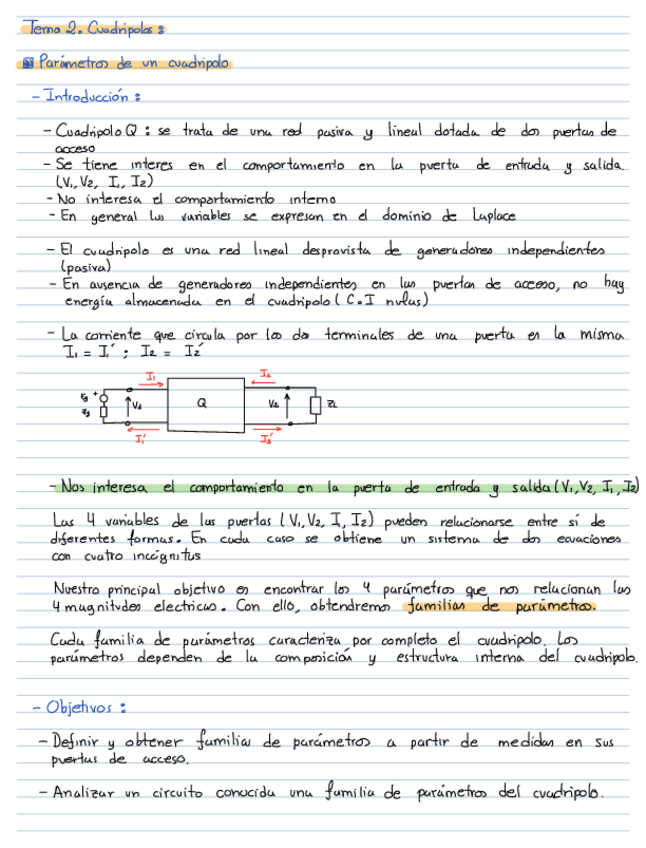 Tema 2. Cuadripolos :
Parámetros de un cuadripolo
- Introducción :
- Cuadripolo Q : se trata de una red pasiva y lineal dotada de dos puertas de
acceso
- Se tiene interes en el comportamiento en la puerta de entrada y salida.
(V₁, V₂, I₁, I₂)
- No interesa el comportamiento interno
- En general las variables se expresan en el dominio de Laplace
- El cuadripolo es una red lineal desprovista de generadores independientes
(pasiva)
- En ausencia de generadores independientes en las puertas de acceso, no hay
energía almacenada en el cuadripolo ( C.I nulas)
- La corriente que circula por los dos terminales de una puerta es la misma
I₁ = I₁' ; I₂ = I₂'
I₁ I₂
Eg + V₁ Q V₂ ZL
Zg
I₁' I₂'
- Nos interesa el comportamiento en la puerta de entrada y salida (V₁, V₂, I₁, I₂)
Las 4 variables de las puertas (V₁, V₂, I, I₂) pueden relacionarse entre sí de
diferentes formas. En cada caso se obtiene un sistema de dos ecuaciones
con cuatro incógnitas
Nuestro principal objetivo es encontrar los 4 parámetros que nos relacionan las
4 magnitudes electricas. Con ello, obtendremos familias de parámetros.
Cada familia de parámetros caracteriza por completo el cuadripolo. Los
parámetros dependen de la composición y estructura interna del cuadripolo.
- Objetivos :
- Definir y obtener familias de parámetros a partir de medidas en sus
puertas de acceso.
- Analizar un circuito conocida una familia de parámetros del cuadripolo.